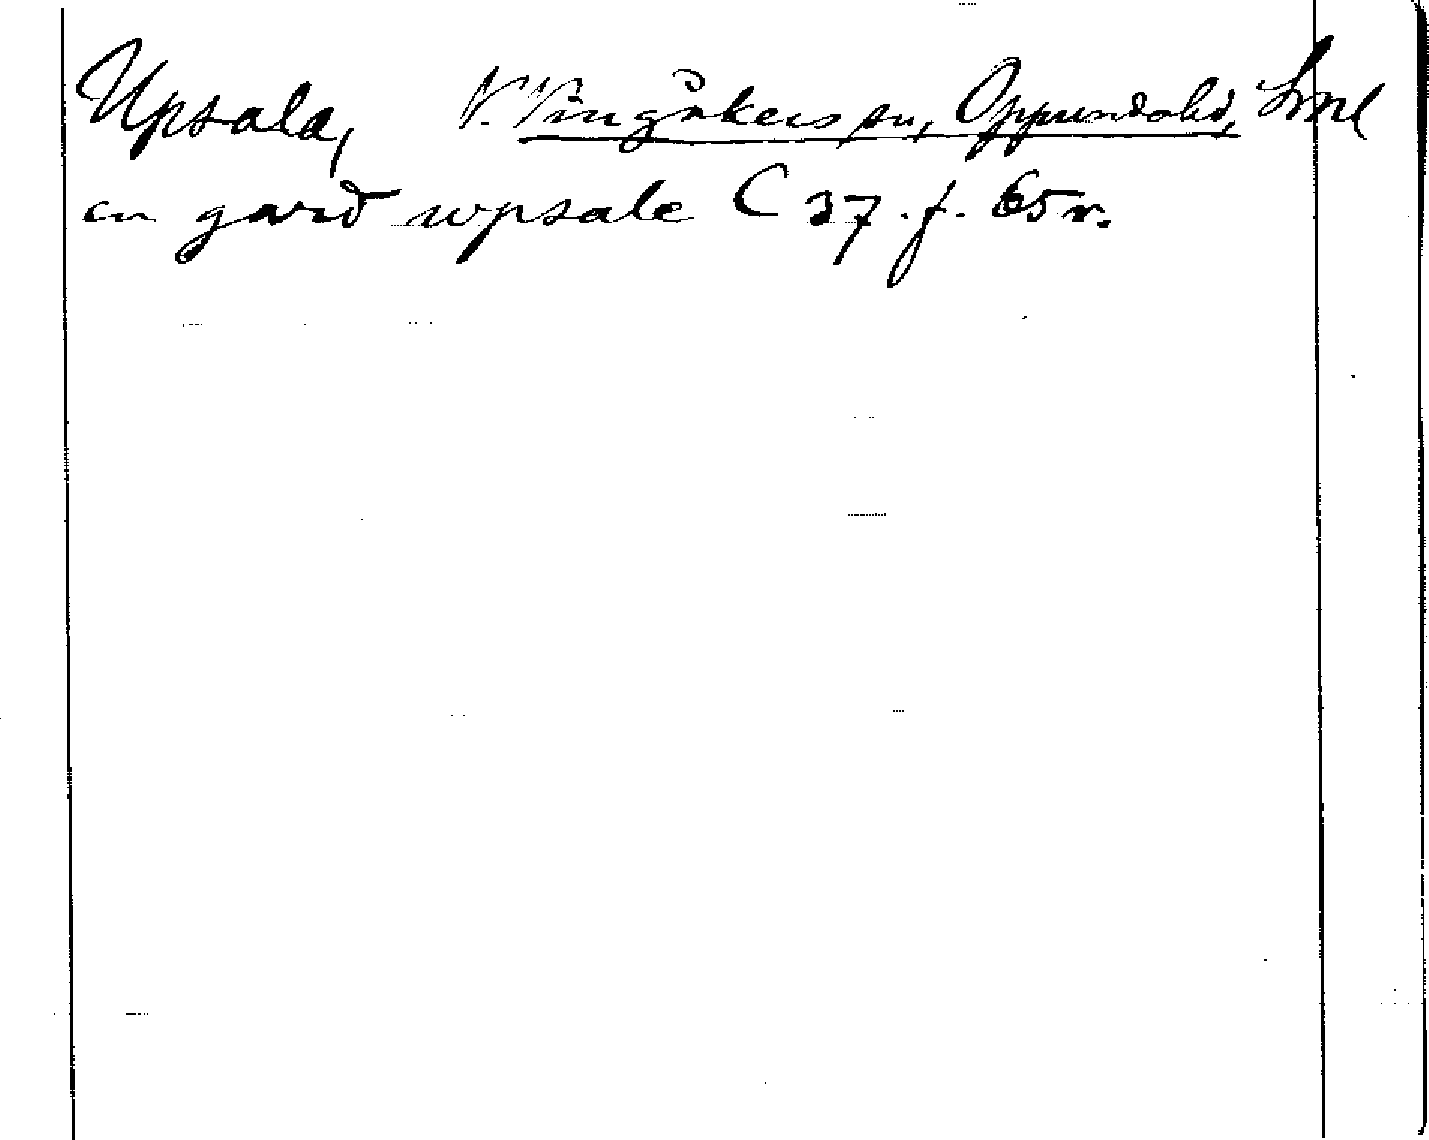 Upsala, V. Vingåkers sn, Oppunda hd, Srml
en gard wpsale C 37. f. 65 r.